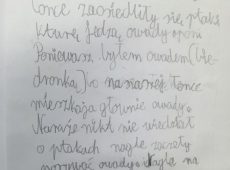 łonce zasiedliły się ptaki
kture jedzą owady i oni
Poniewarz byłem owadem (bie-
dronką) to na naszej łonce
mieszkają głównie owady.
Narazie nikt nie wiedział
o ptakach nagle zaczeły
porywać owady. Nagle na